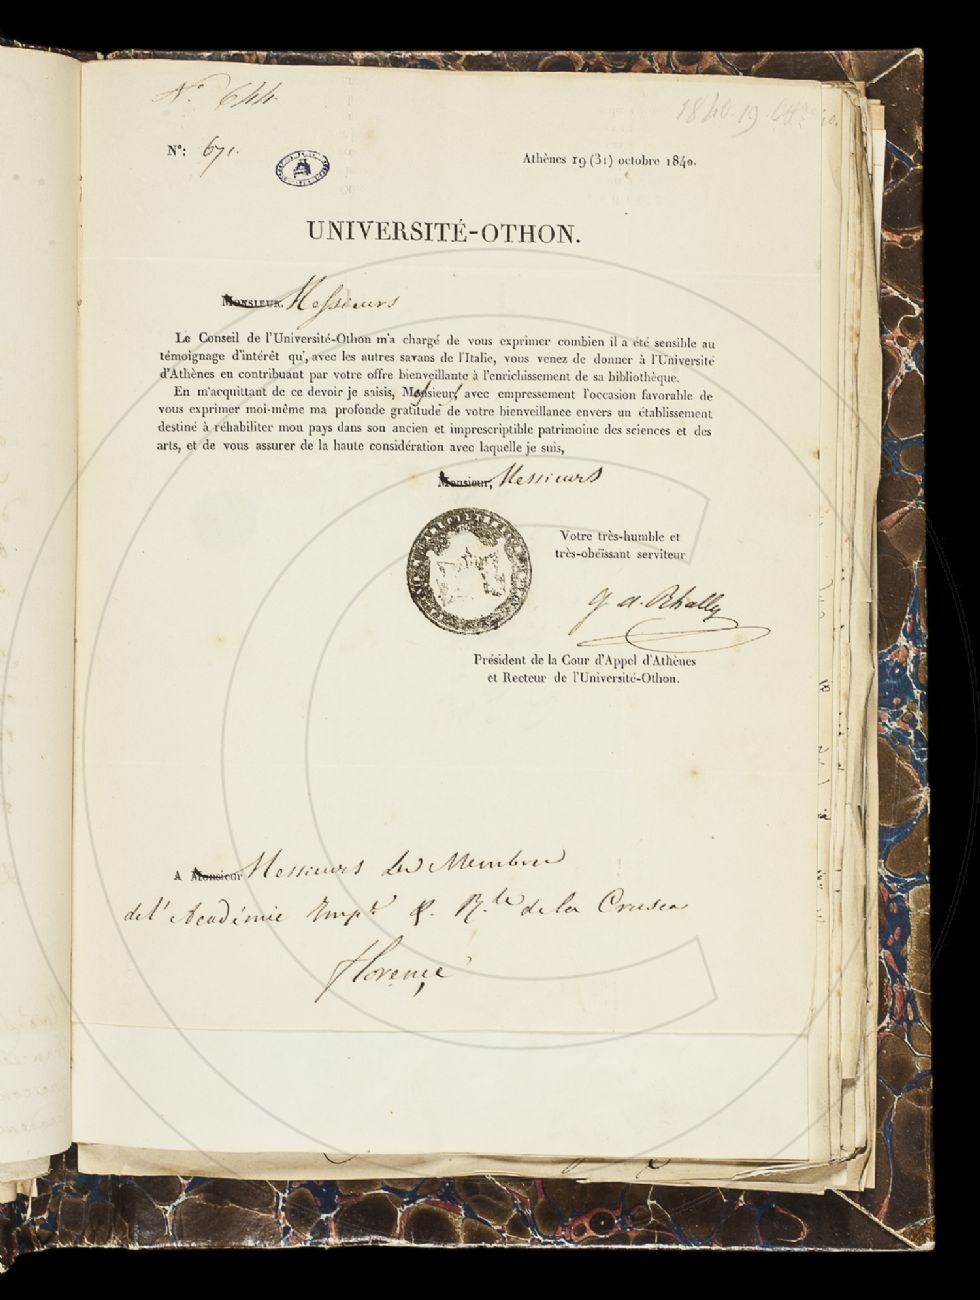 N.° 644.
1840. 19. Ott.
N°: 671.
Athènes 19 (31) octobre 1840.
UNIVERSITÉ-OTHON.
Monsieur. Messieurs
Le Conseil de l'Université-Othon m'a chargé de vous exprimer combien il a été sensible au
témoignage d'intérêt qu', avec les autres savans de l'Italie, vous venez de donner à l'Université
d'Athènes en contribuant par votre offre bienveillante à l'enrichissement de sa bibliothèque.
En m'acquittant de ce devoir je saisis, Messieurs, avec empressement l'occasion favorable de
vous exprimer moi-même ma profonde gratitude de votre bienveillance envers un établissement
destiné à réhabiliter mon pays dans son ancien et imprescriptible patrimoine des sciences et des
arts, et de vous assurer de la haute considération avec laquelle je suis,
Monsieur, Messieurs
Votre très-humble et
très-obéissant serviteur
G. A. Rhally
Président de la Cour d'Appel d'Athènes
et Recteur de l'Université-Othon.
A Monsieur Messieurs les Membres
de l'Académie Imp.le & R.le de la Crusca
Florence